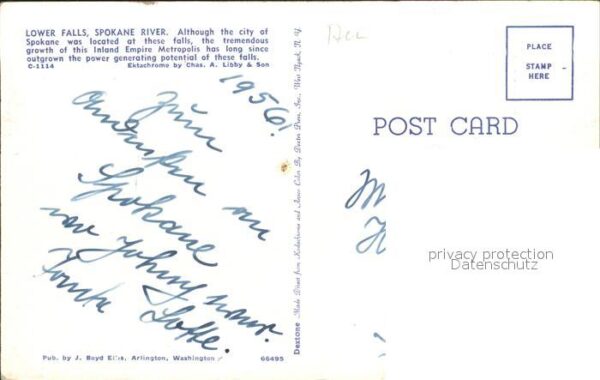 LOWER FALLS, SPOKANE RIVER. Although the city of
Spokane was located at these falls, the tremendous
growth of this Inland Empire Metropolis has long since
outgrown the power generating potential of these falls.
C-1114 Ektachrome by Chas. A. Libby & Son
1956!
Zum
Andenken an
Spokane
von Johnny u.
Tante Lotte.
Pub. by J. Boyd Ellis, Arlington, Washington
66495
Dextone Made Direct from Kodachrome and Ansco Color By Dexter Press, Inc., West Nyack, N. Y.
POST CARD
PLACE
STAMP
HERE
privacy protection
Datenschutz